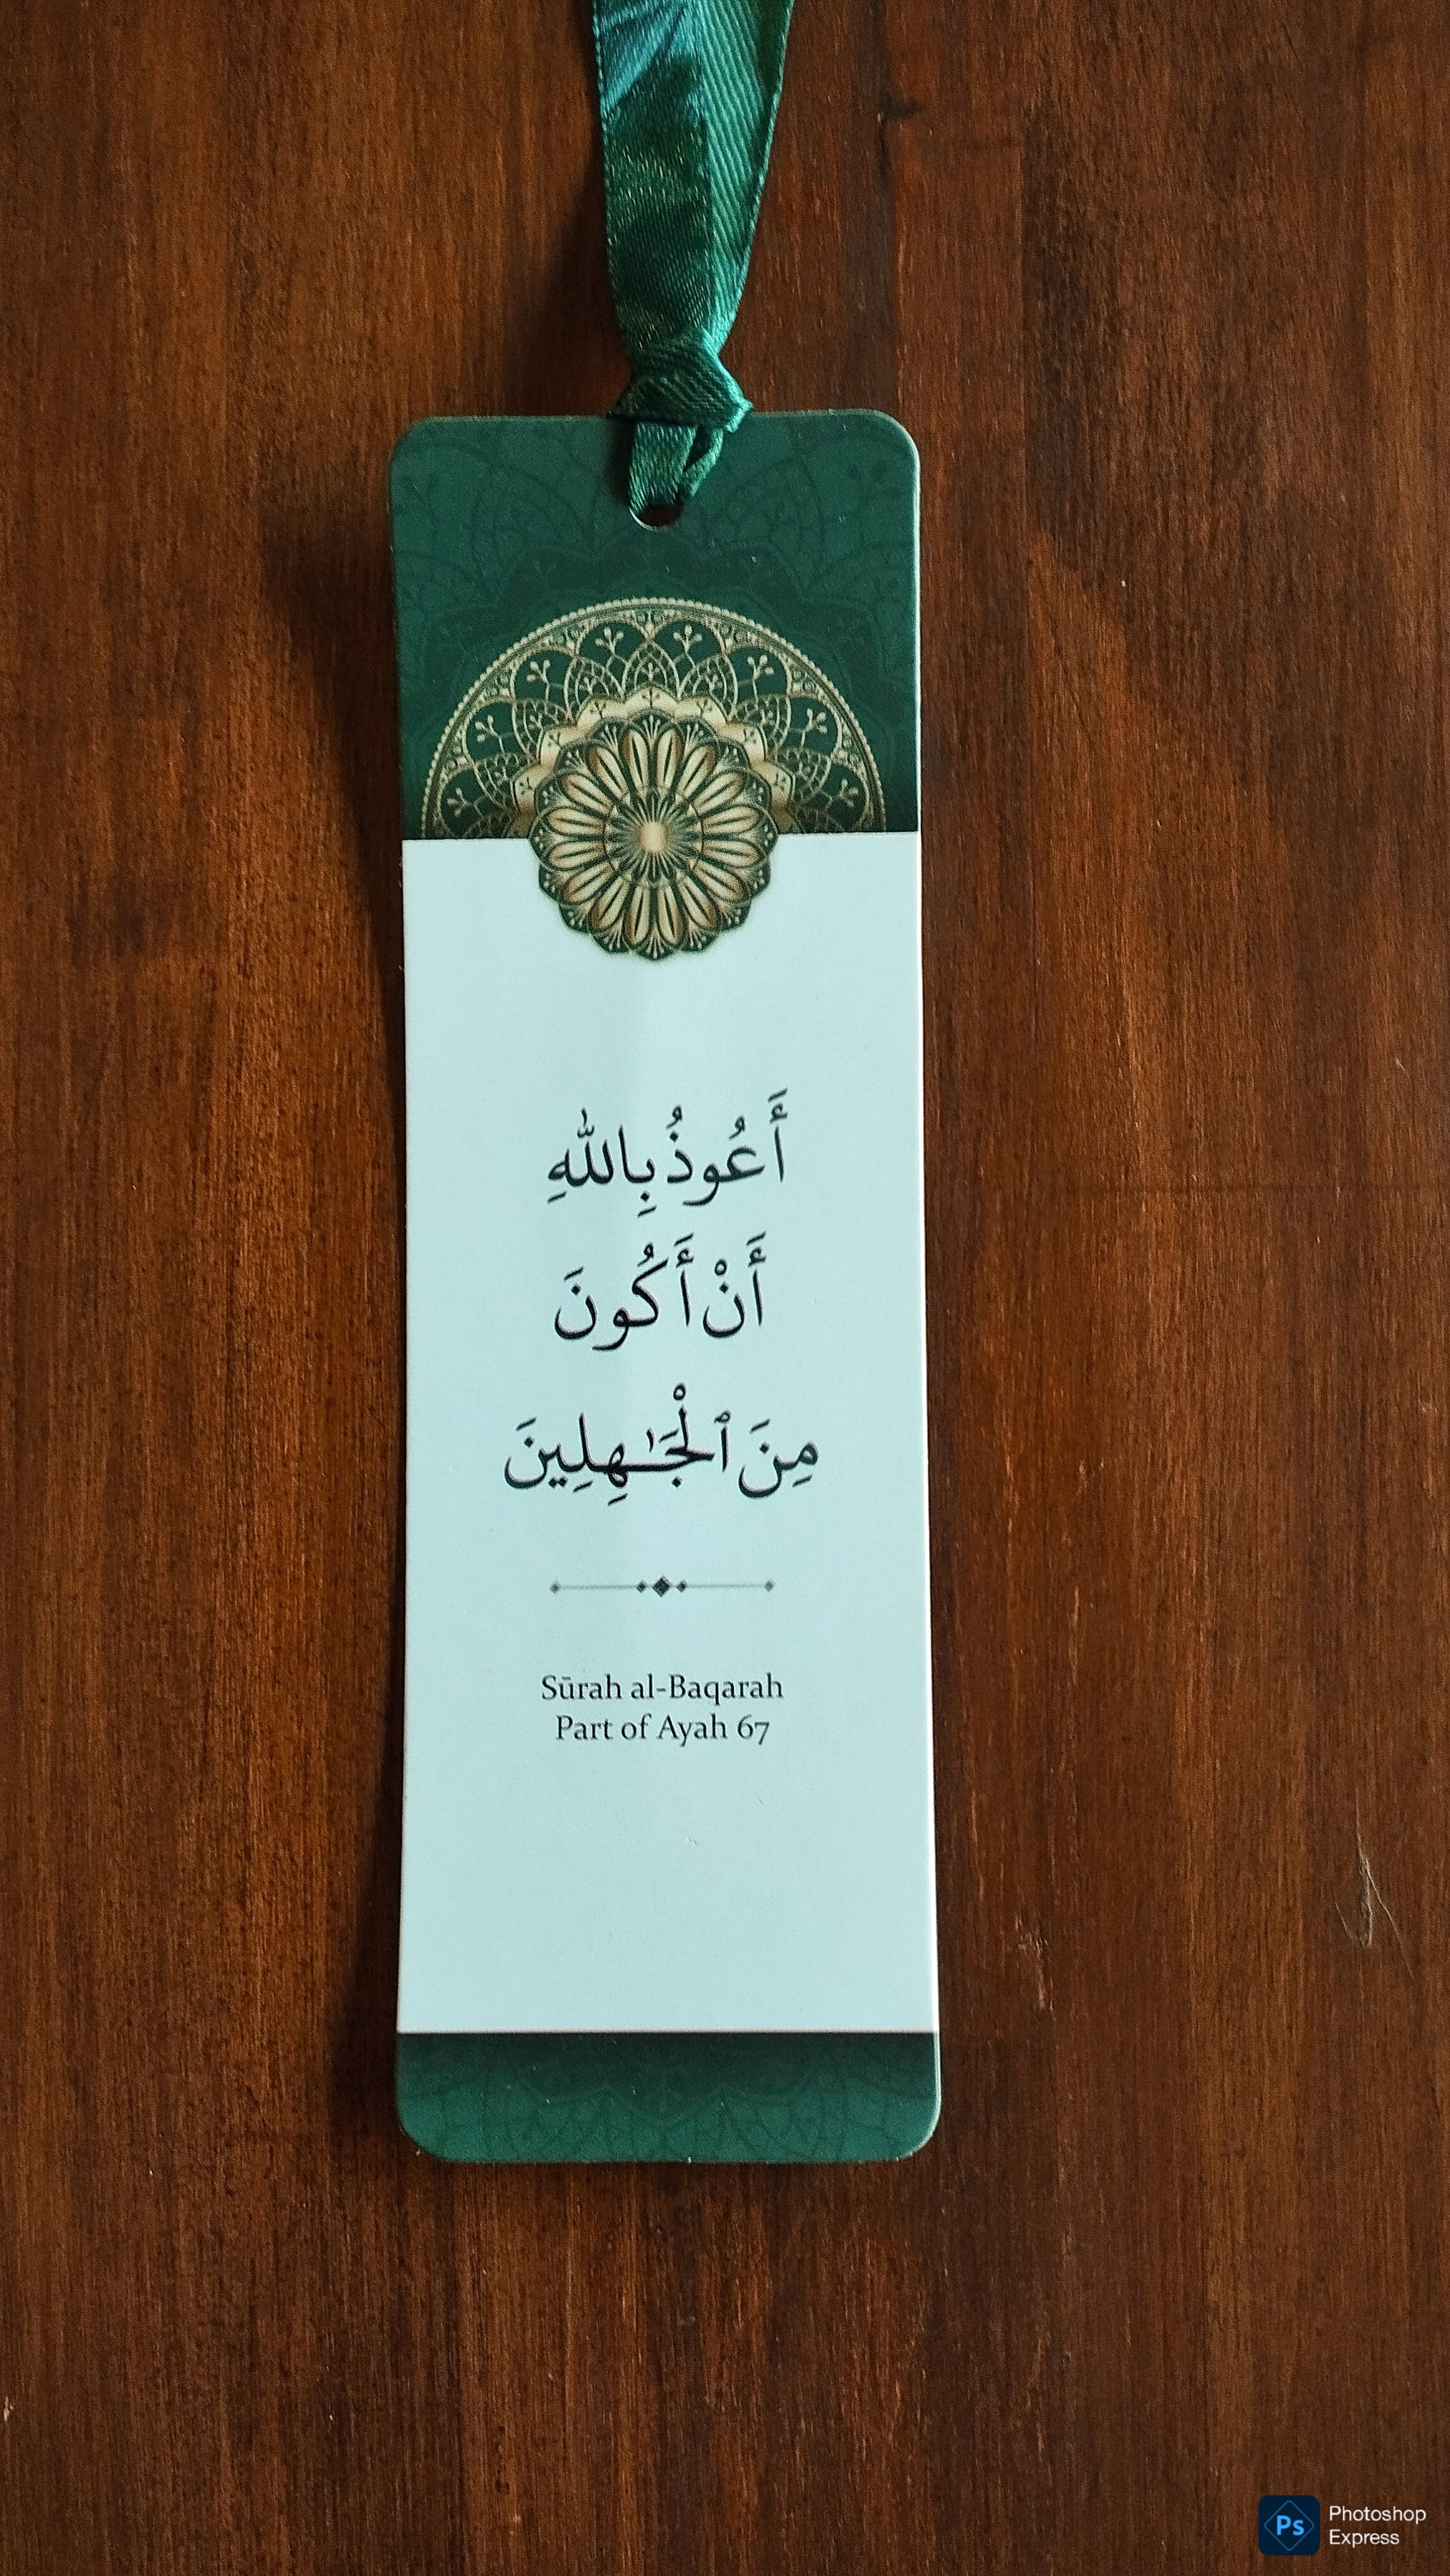 أَعُوذُ بِاللَّهِ
أَنْ أَكُونَ
مِنَ ٱلْجَـٰهِلِينَ
Sūrah al-Baqarah
Part of Ayah 67
Ps
Photoshop
Express